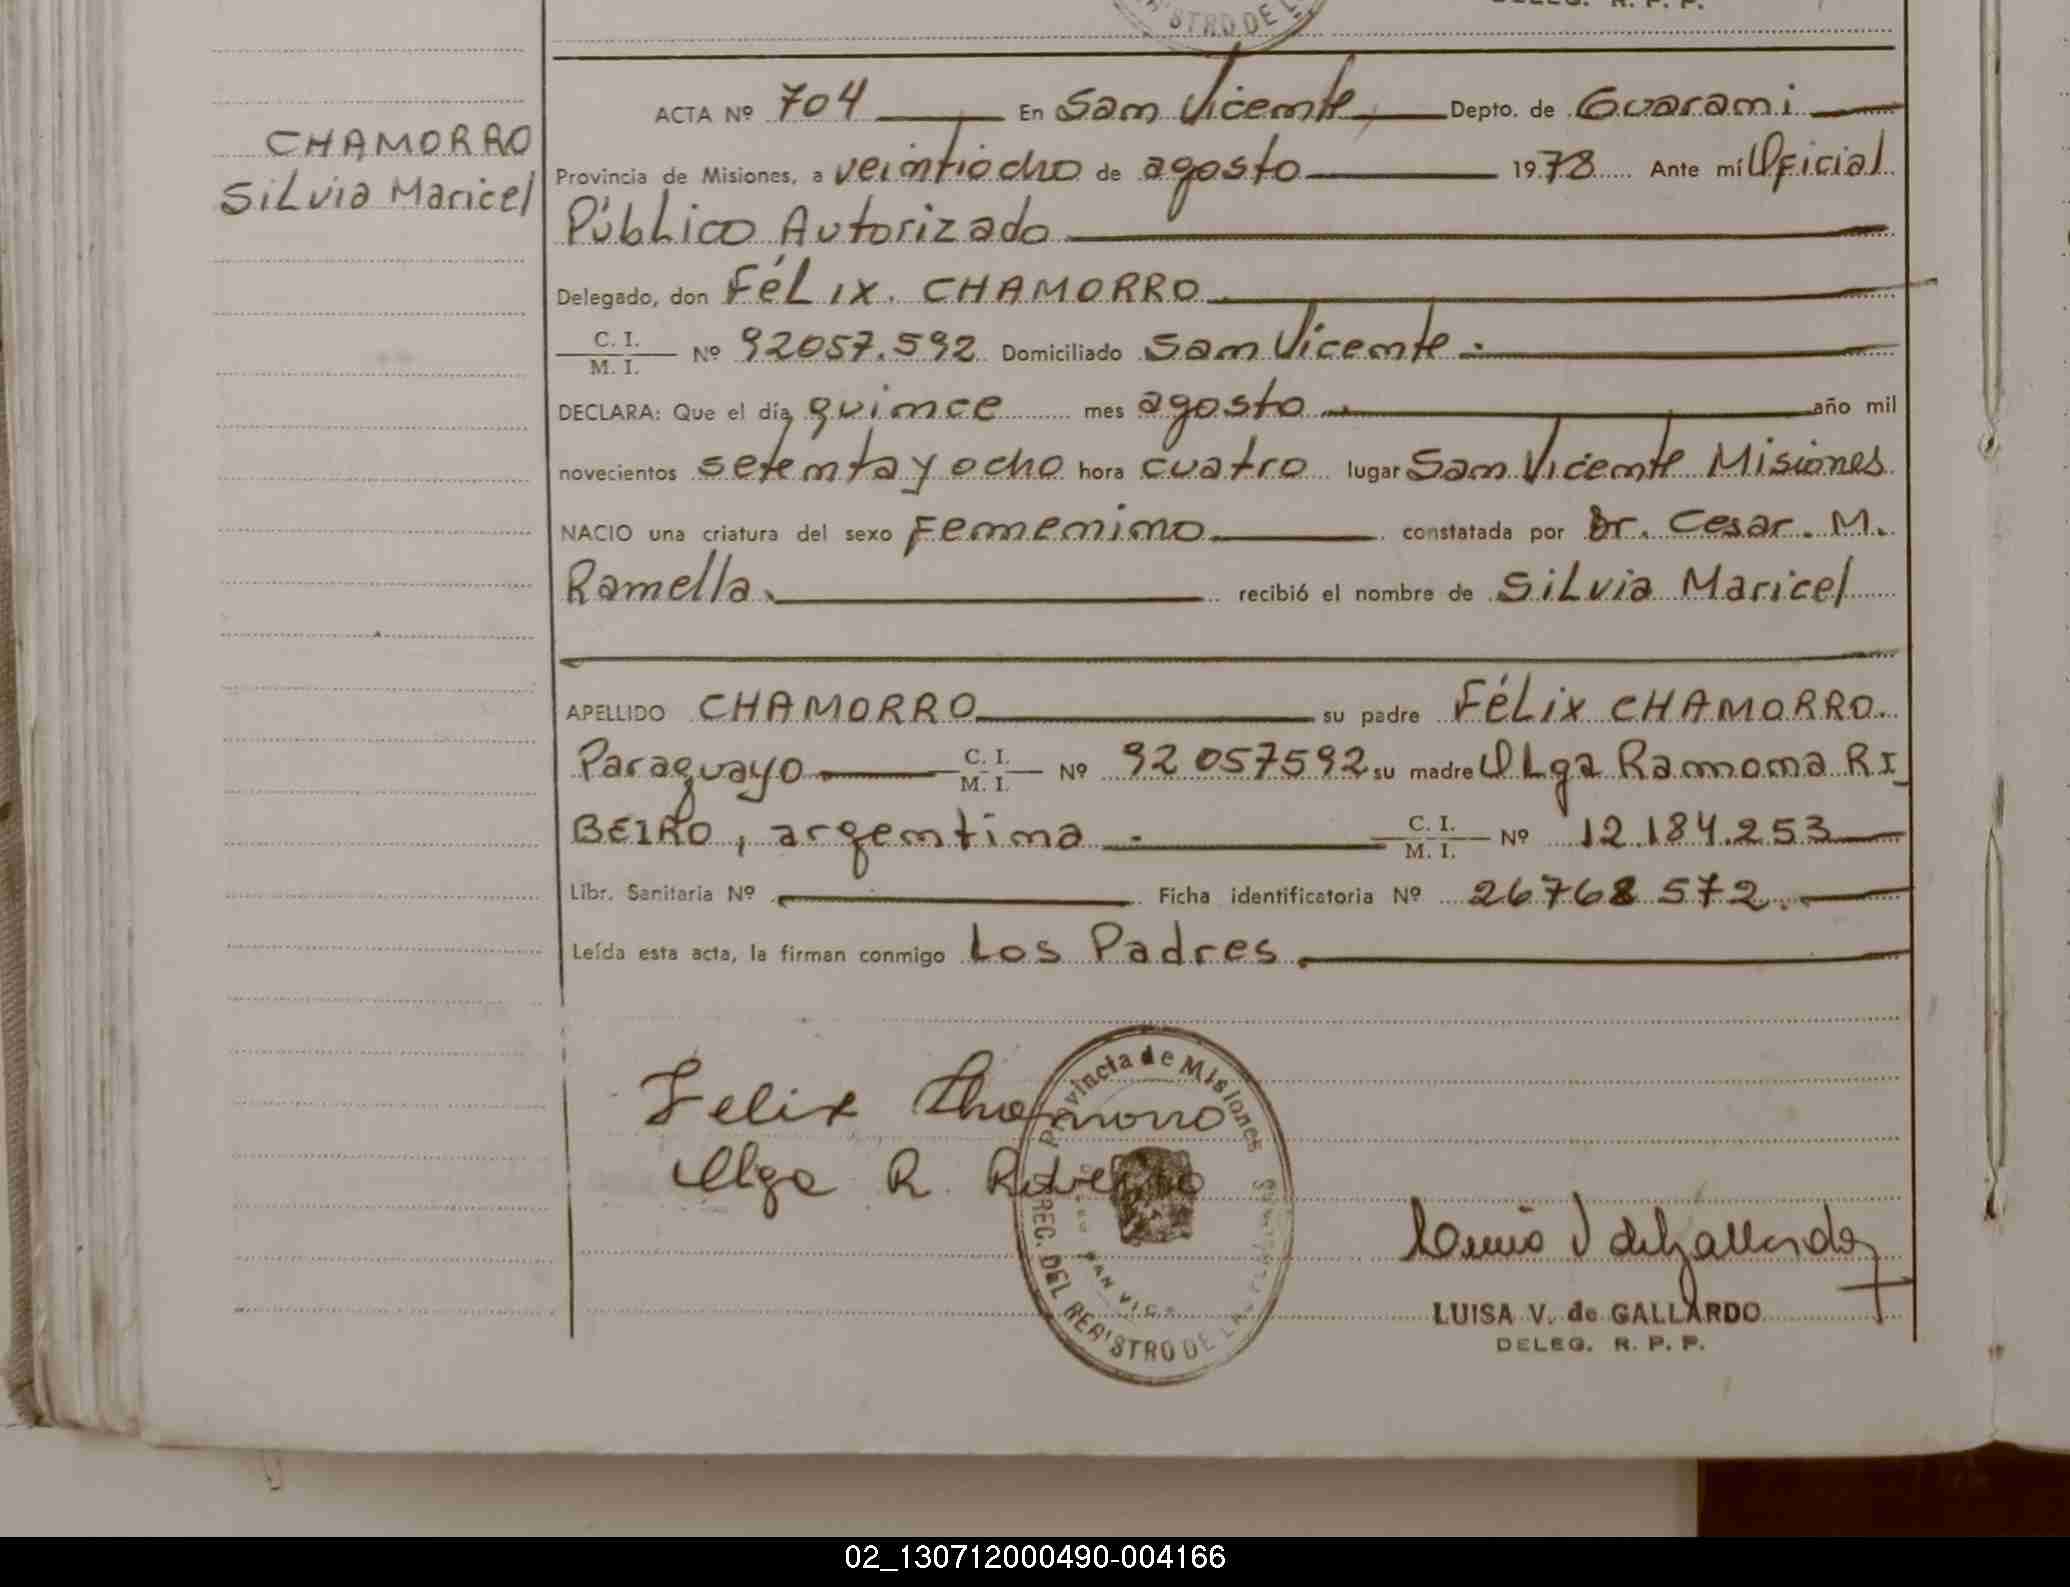 DELEG. R. P. P.
STRO DE L
ACTA Nº 704 En San Vicente, Depto. de Guarani
CHAMORRO
Silvia Maricel
Provincia de Misiones, a veintiocho de agosto 1978 Ante mí Oficial
Público Autorizado
Delegado, don FéLix. CHAMORRO
C. I.
M. I. Nº 92057.592 Domiciliado San Vicente
DECLARA: Que el día quince mes agosto año mil
novecientos setenta y ocho hora cuatro lugar San Vicente Misiones
NACIO una criatura del sexo Femenino constatada por Dr. Cesar. M.
Ramella recibió el nombre de Silvia Maricel
APELLIDO CHAMORRO su padre FéLix CHAMORRO.
Paraguayo C. I.
M. I. Nº 92 057592 su madre Olga Ramona RI_
BEIRO, argentina - C. I.
M. I. Nº 12.184.253
Libr. Sanitaria Nº Ficha identificatoria Nº 26768 572.
Leída esta acta, la firman conmigo Los Padres
Felix Chamorro
Olga R. Ribeiro
Provincia de Misiones
REC. DEL REGISTRO DE LA
SAN VIC
LUISA V. de GALLARDO
DELEG. R. P. P.
02_130712000490-004166